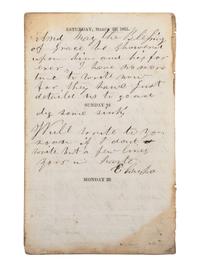 SATURDAY, March 1862.
And may the blessing
of Grace be showered
upon him and his for
ever, I have no more
time to write now
for they have just
detailed us to go and
dig some sinks
SUNDAY
Will write to you
soon if I don't
write but a few lines
yours in haste
MONDAY